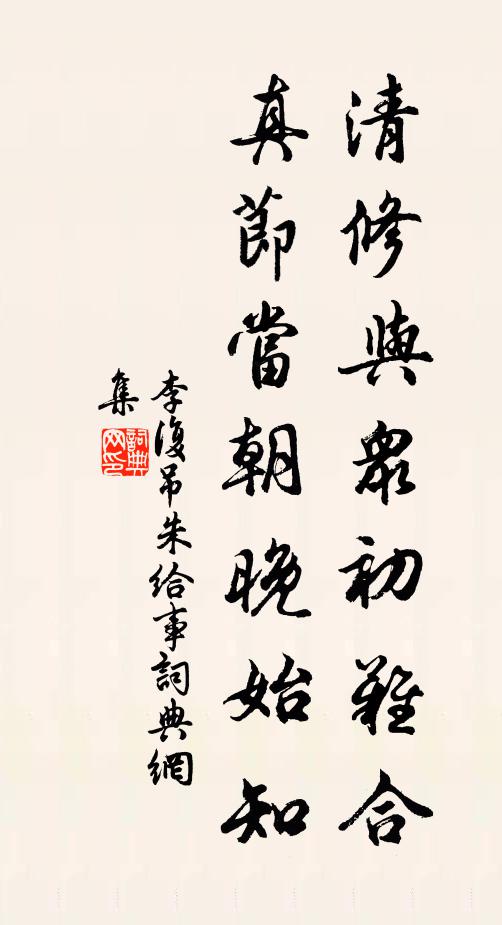 清修與眾初難合
真節當朝晚始知
李復吊朱給事詞典網
集
詞典网印